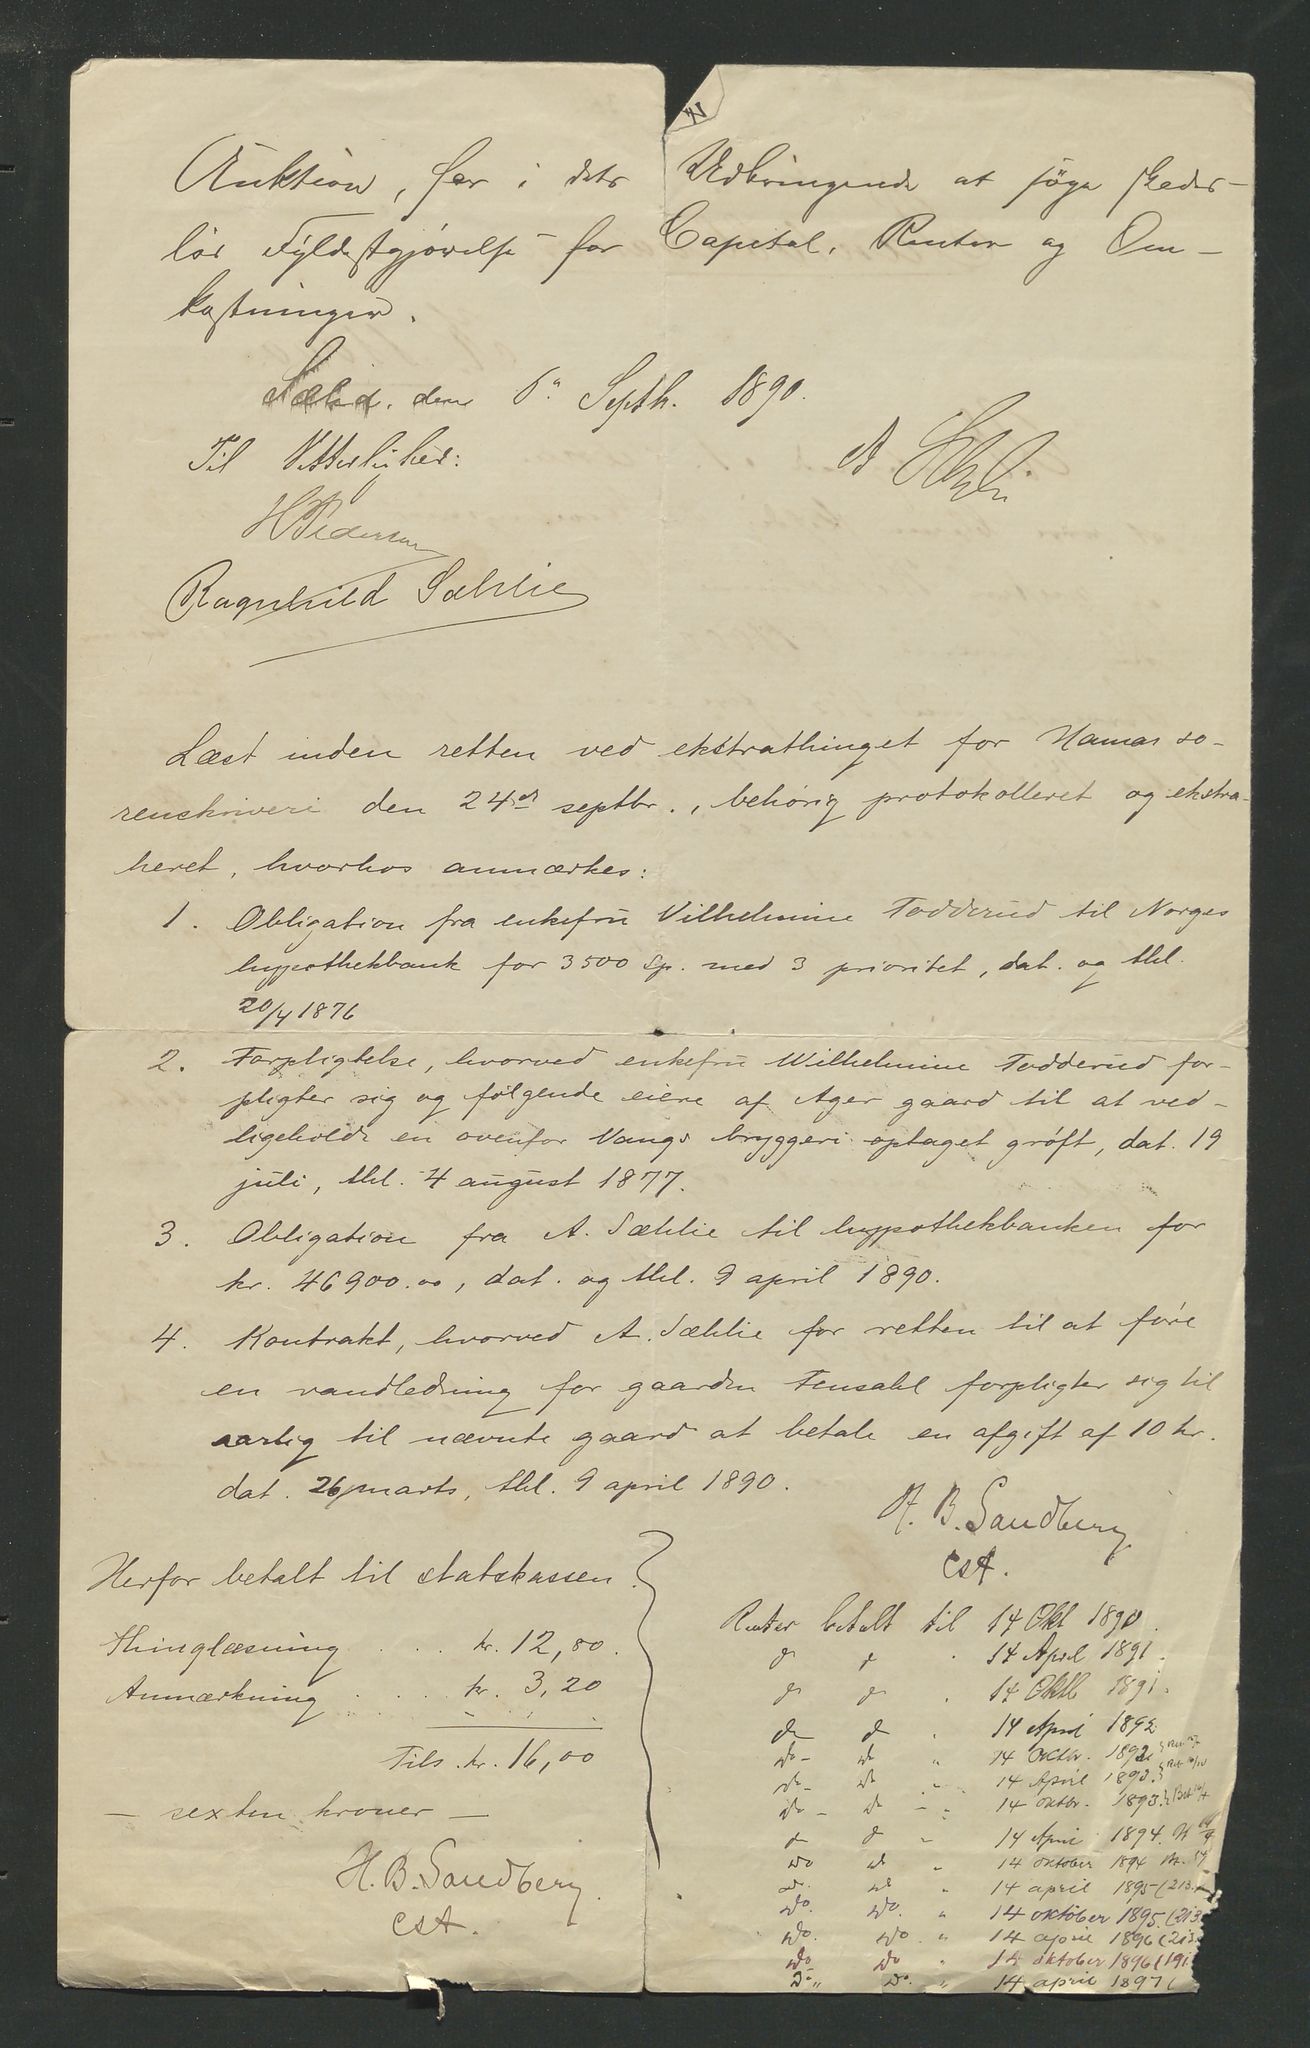 N
Auktion, for i dets Udbringende at søge skades-
løs Fyldestgjørelse for Capital, Renter og Om-
kostninger.
Sælid, den 6te Septb. 1890.
Til Vitterlighed:
A Sæhlie
HPedersen
Ragnhild Sæhlie
Læst inden retten ved ekstrathinget for Hamar so-
renskriveri den 24de septbr., behørig protokolleret og ekstra-
heret, hvorhos anmærkes:
1. Obligation fra enkefru Vilhelmine Fodderud til Norges
hypothekbank for 3500 Sp. med 3 prioritet, dat. og thl.
20/4 1876
2. Forpligtelse, hvorved enkefru Wilhelmine Fodderud for-
pligter sig og følgende eiere af Ager gaard til at ved-
ligeholde en ovenfor Vangs bryggeri optaget grøft, dat. 19
juli, thl. 4 august 1877.
3. Obligation fra A. Sæhlie til hypothekbanken for
kr. 46900.00, dat. og thl. 9 april 1890.
4. Kontrakt, hvorved A. Sæhlie for retten til at føre
en vandledning for gaarden Finsahl forpligter sig til
aarlig til nævnte gaard at betale en afgift af 10 kr.
dat. 26 marts, thl. 9 april 1890.
H. B. Sandberg
cst.
Herfor betalt til statskassen.
Thinglæsning . . . kr. 12,80.
Anmærkning . . . . kr. 3,20
Tils. kr. 16,00
— sexten kroner —
H. B. Sandberg.
cst.
Renter betalt til 14 Okt 1890.
do do " 14 April 1891.
do do " 14 Oktb 1891.
do do " 14 April 1892
do - do " 14 Oktbr. 1892
do - do " 14 April 1893.
do - do - " 14 oktbr. 1893.
do do " 14 April 1894.
do do " 14 oktober 1894
do. do " 14 april 1895 (213.
do. do. " 14 oktober 1895. (213
do. do. " 14 april 1896 (213
do do " 14 oktober 1896 (191
do " do. " 14 april 1897 (